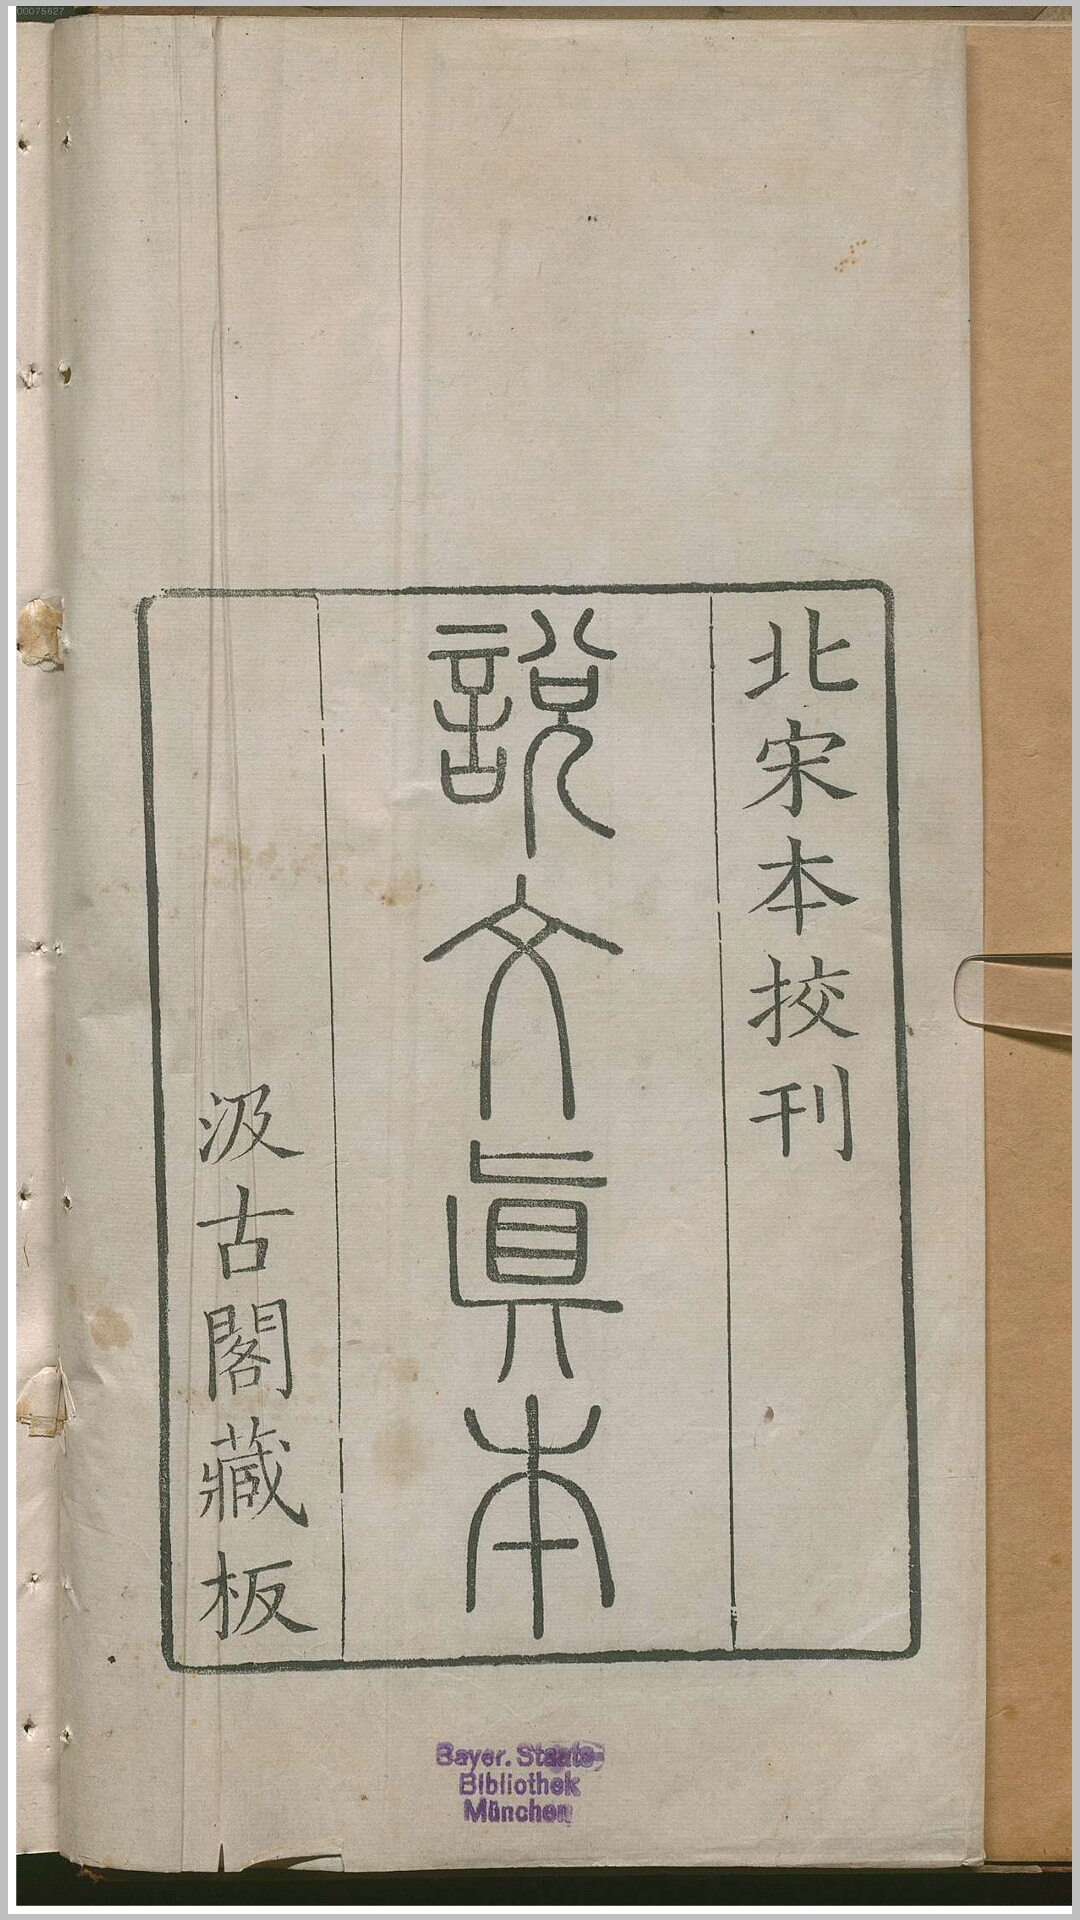 北宋本挍刊
說文眞本
汲古閣藏板
Bayer. Staats-
Bibliothek
München
00075827